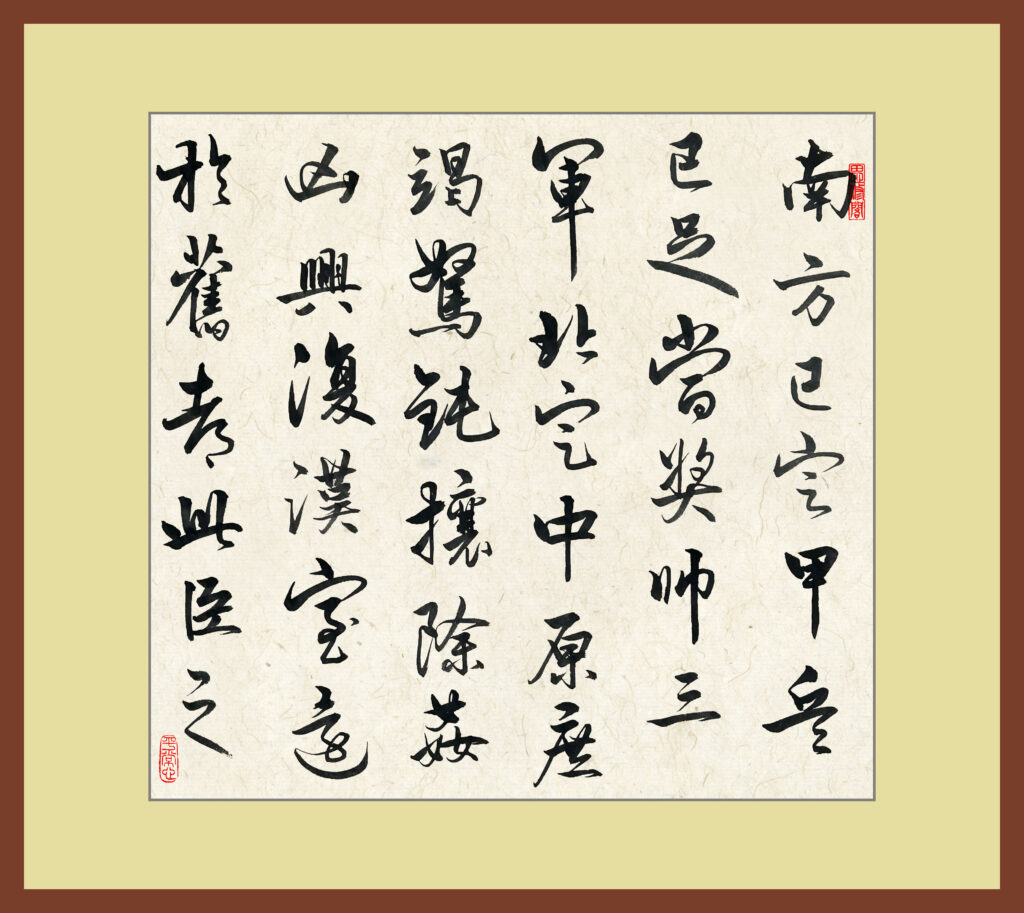 南方已定甲兵
已足當獎帥三
軍北定中原庶
竭駑鈍攘除姦
凶興復漢室還
於舊都此臣之
平常心